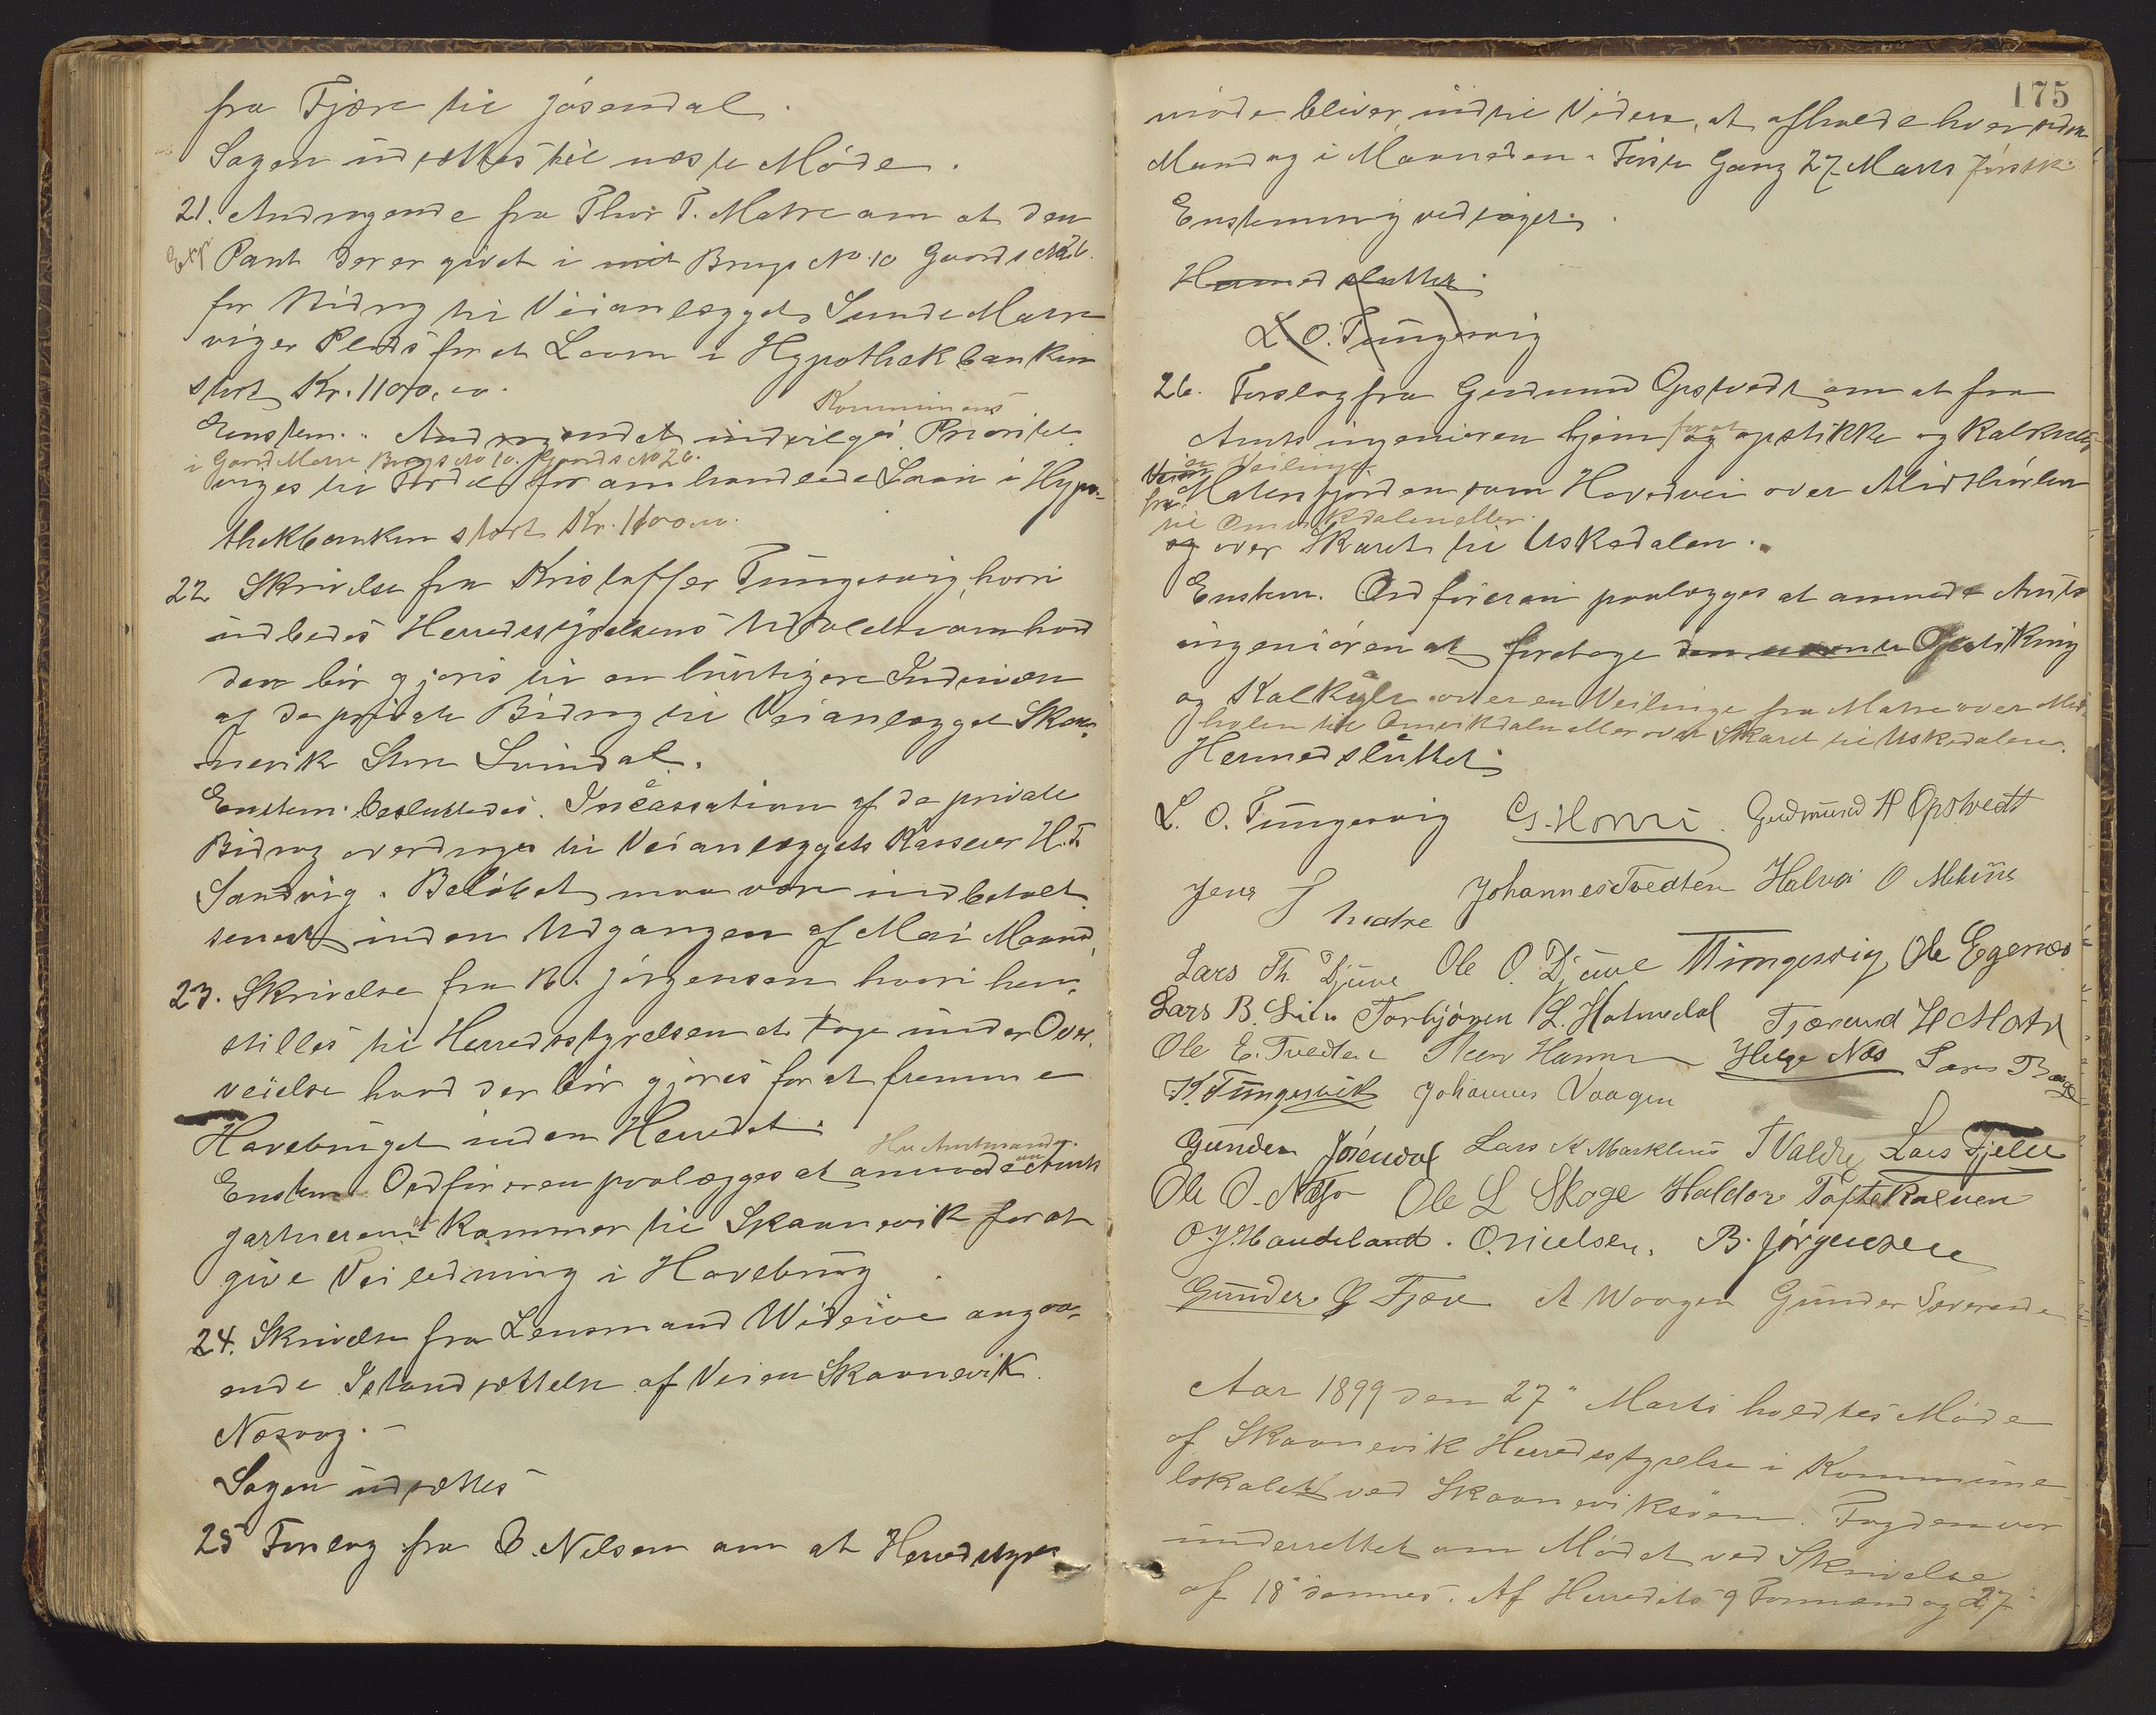 fra Fjære til Jøsendal.
Sagen udsættes til næste Møde.
21. Andragende fra Thor T. Matre om at den
Exp Pant der er givet i mit Brugs No 10 Gaards No 26.
for Bidrag til Veianlægget Sunde Matre
viger Plads for et Laan i Hypothekbanken
stort Kr. 1100,00.
Kommunens
Enstem. Andragendet indvilges. Prioritet
i Gaard Matre Brugs No 10. Gaards No 26.
viges til Fordel for omhandlede Laan i Hypo-
thekbanken stort Kr. 1100,00.
22 Skrivelse fra Kristoffer Tungesvig, hvori
udbedes Herredsstyrelsens Udtalelse om hvad
der bør gjøres til en hurtigere Inddrivelse
af de private Bidrag til Veianlægget Skaa-
nevik Store Lundal.
Enstem. besluttedes. Incassation af de private
Bidrag overdrages til Veianlæggets Kasserer H. T.
Sandvig. Beløbet maa være indbetalt
senest inden Udgangen af Mai Maaned.
23. Skrivelse fra B. Jørgensen hvori hen-
stilles til Herredsstyrelsen at tage under Over-
veielse hvad der bør gjøres for at fremme
Havebruget inden Herredet.
Hr Amtmanden
Enstem Ordføreren paalægges at anmode om Amts
gartneren kommer til Skaanevik for at
give Veiledning i Havebrug
24. Skrivelse fra Lensmand Wideröe angaa-
ende Istandsættelse af Veien Skaanevik
Næsvag.-
Sagen udsættes
25 Forslag fra O. Nilsen om at Herredsstyre
175
møde bliver indtil Videre, at afholde hver sidste
Mandag i Maaneden. Første Gang 27 Marts førstk.
Enstemmig vedtaget.
Hermed sluttet.
L. O. Tungesvig
26. Forslag fra Gudmund Opstvedt om at faa
Amtsingeniøren hjem for at og opstikke og kalkulere
Veien en Veilinje
fra Matrefjorden som Hovedvei over Midthølen
til Omvikdalen eller
og over Skaret til Uskedalen.
Enstem. Ordføreren paalægges at anmode Amts
ingeniøren at foretage den nævnte Opstikning
og Kalkyle over en Veilinje fra Matre over Mid-
hølen til Omvikdalen eller over Skaret til Uskedalen.
Hermed sluttet
L. O. Tungesvig G. Honsi. Gudmund H Opstvedt
Jens J Matre Johannes Tvedten Halvor O Mehus
Lars Th. Djuve Ole O. Djuve T Tungesvig Ole Egenæs
Lars B. Torbjörn L. Holmedal Tjærand H Matre
Ole E. Tvedten Hamre Helge Næs Lars
K. Tungesvik Johannes Vaagen
Gunder Jösendal Lars K Markhus T Valdre Lars Fjelle
Ole O. Næs Ole L Skoge Haldor Toftekalven
O J. Handeland. O. Nielsen. B. Jørgensen
Gunder G Fjære A Waagen Gunder Severeide
Aar 1899 den 27" Marts holdtes Møde
af Skaanevik Herredsstyrelse i Kommune
lokalet ved Skaaneviksøen. Fogden var
underrettet om Mødet ved Skrivelse
af 18" dennes. Af Herredets 9 Formænd og 27